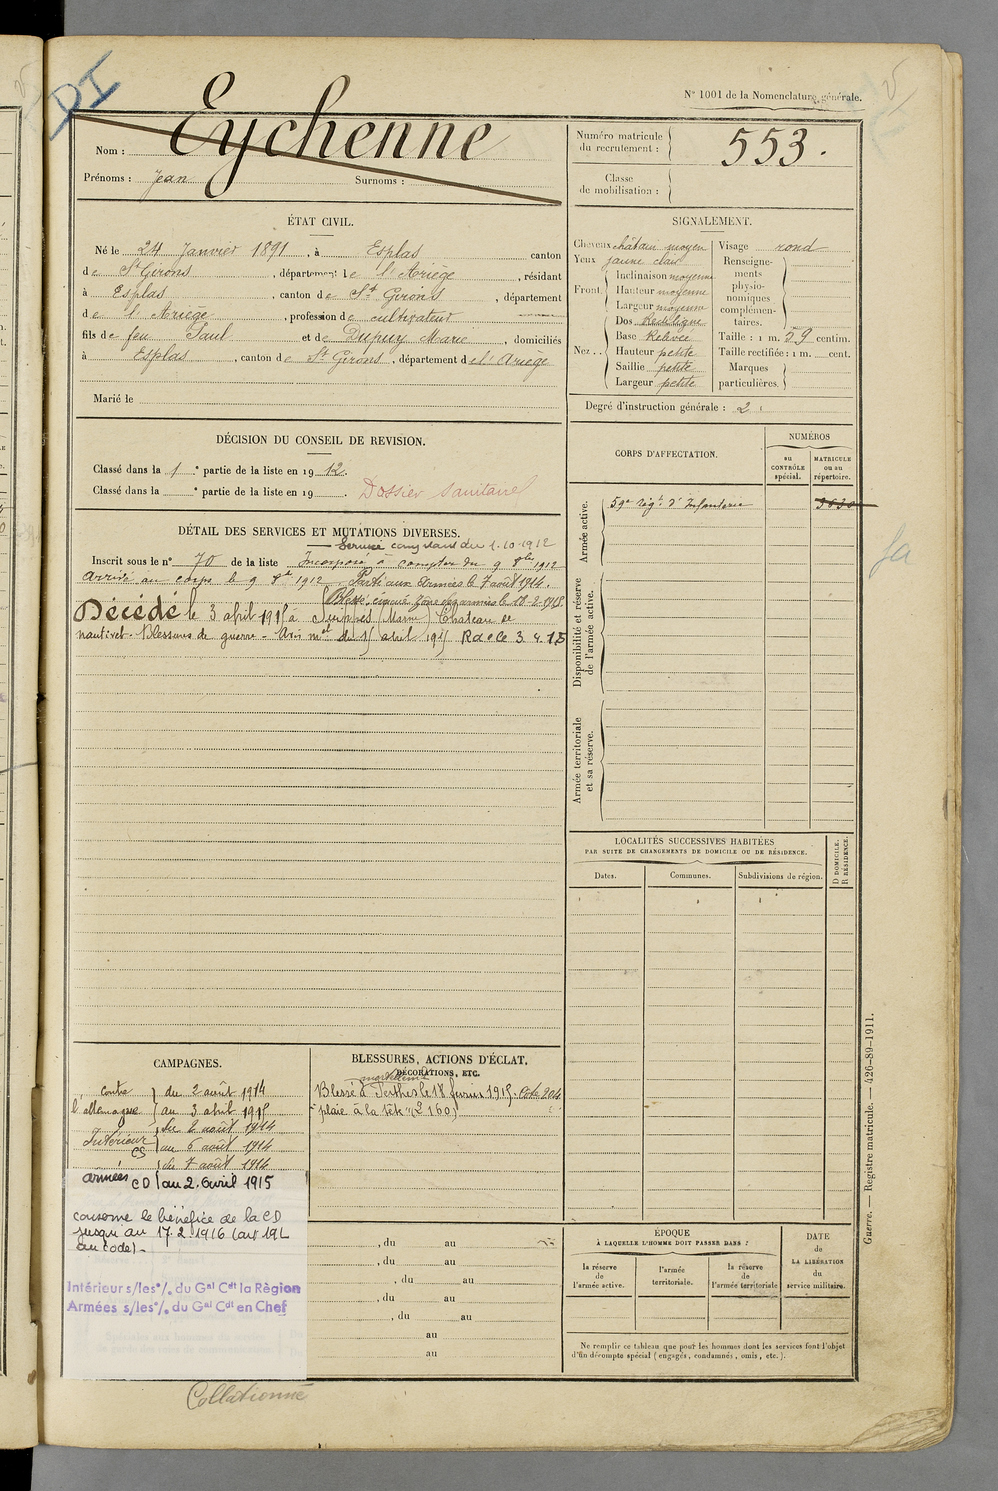 DI
N° 1001 de la Nomenclature générale.
Nom : Eychenne
Prénoms : Jean Surnoms :
Numéro matricule du recrutement : 553.
Classe de mobilisation :
ÉTAT CIVIL.
Né le 24 Janvier 1891, à Esplas canton
de St Girons, département de l'Ariège, résidant
à Esplas, canton de St Girons, département
de l'Ariège, profession de cultivateur
fils de feu Paul et de Dupuy Marie, domiciliés
à Esplas, canton de St Girons, département de l'Ariège
Marié le
SIGNALEMENT.
Cheveux châtain moyen
Yeux jaune clair
Front. Inclinaison moyenne
Hauteur moyenne
Largeur moyenne
Nez.. Dos Rectiligne
Base Relevée
Hauteur petite
Saillie petite
Largeur petite
Visage rond
Renseignements physionomiques complémentaires.
Taille : 1 m. 59 centim.
Taille rectifiée : 1 m. cent.
Marques particulières.
Degré d'instruction générale : 2
DÉCISION DU CONSEIL DE REVISION.
Classé dans la 1 e partie de la liste en 1912.
Classé dans la e partie de la liste en 19 . Dossier sanitaire
CORPS D'AFFECTATION.
NUMÉROS
au CONTRÔLE spécial.
MATRICULE ou au répertoire.
Armée active.
59e Rég.t d'Infanterie
Disponibilité et réserve de l'armée active.
Armée territoriale et sa réserve.
DÉTAIL DES SERVICES ET MUTATIONS DIVERSES.
Service comptant du 1-10-1912
Inscrit sous le n° 70 de la liste Incorporé à compter du 9 8bre 1912
Arrivé au corps le 9 8bre 1912 Parti aux armées le 7 août 1914.
Blessé, évacué zône des armées le 18-2-1915
Décédé le 3 avril 1915 à Suippes (Marne) Chateau de
nantivet. Blessures de guerre - Avis mel du 15 avril 1915 Radié 3.4.15
LOCALITÉS SUCCESSIVES HABITÉES
PAR SUITE DE CHANGEMENTS DE DOMICILE OU DE RÉSIDENCE.
Dates.
Communes.
Subdivisions de région.
D DOMICILE.
R RÉSIDENCE.
CAMPAGNES.
contre l'allemagne
du 2 août 1914
au 3 avril 1915
Intérieur CS
du 2 août 1914
au 6 août 1914
du 7 août 1914
armées CD au 2. avril 1915
conserve le bénéfice de la CD
jusqu'au 17.2.1916 (art 19L
au code).
Intérieur s/les °/. du Gal Cdt la Règion
Armées s/les °/. du Gal Cdt en Chef
BLESSURES, ACTIONS D'ÉCLAT,
DÉCORATIONS, ETC.
Blessé à Perthes le 18 février 1915.
plaie à la tête
, du au
, du au
, du au
, du au
, du au
au
au
ÉPOQUE
À LAQUELLE L'HOMME DOIT PASSER DANS :
la réserve de l'armée active.
l'armée territoriale.
la réserve de l'armée territoriale
DATE de LA LIBÉRATION du service militaire.
Ne remplir ce tableau que pour les hommes dont les services font l'objet
d'un décompte spécial (engagés, condamnés, omis, etc.).
Guerre. — Registre matricule. — 426-89-1911.
Collationné